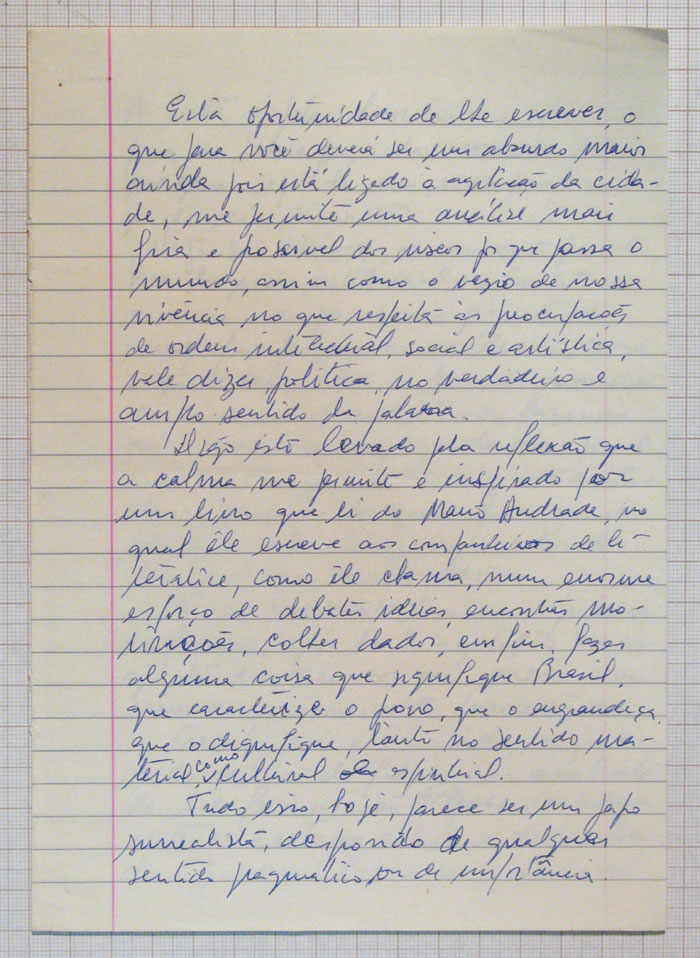 Esta oportunidade de lhe escrever, o
que para você deverá ser um absurdo maior
ainda pois está ligado à agitação da cida-
de, me permite uma análise mais
fria e possível dos riscos por que passa o
mundo, assim como o vazio de nossa
vivência no que respeita às preocupações
de ordem intelectual, social e artística,
vale dizer, política, no verdadeiro e
amplo sentido da palavra.
Digo isto levado pela reflexão que
a calma me permite e inspirado por
um livro que li do Mario Andrade, no
qual êle escreve aos companheiros de li-
teratice, como êle chama, num enorme
esforço de debater idéias, encontrar mo-
tivações, colher dados, enfim, fazer
alguma coisa que signifique Brasil,
que caracterize o povo, que o engrandeça,
que o dignifique, tanto no sentido ma-
terial, como cultural espiritual.
Tudo isso, hoje, parece ser um papo
surrealista, despojado de qualquer
sentido pragmático ou de importância.